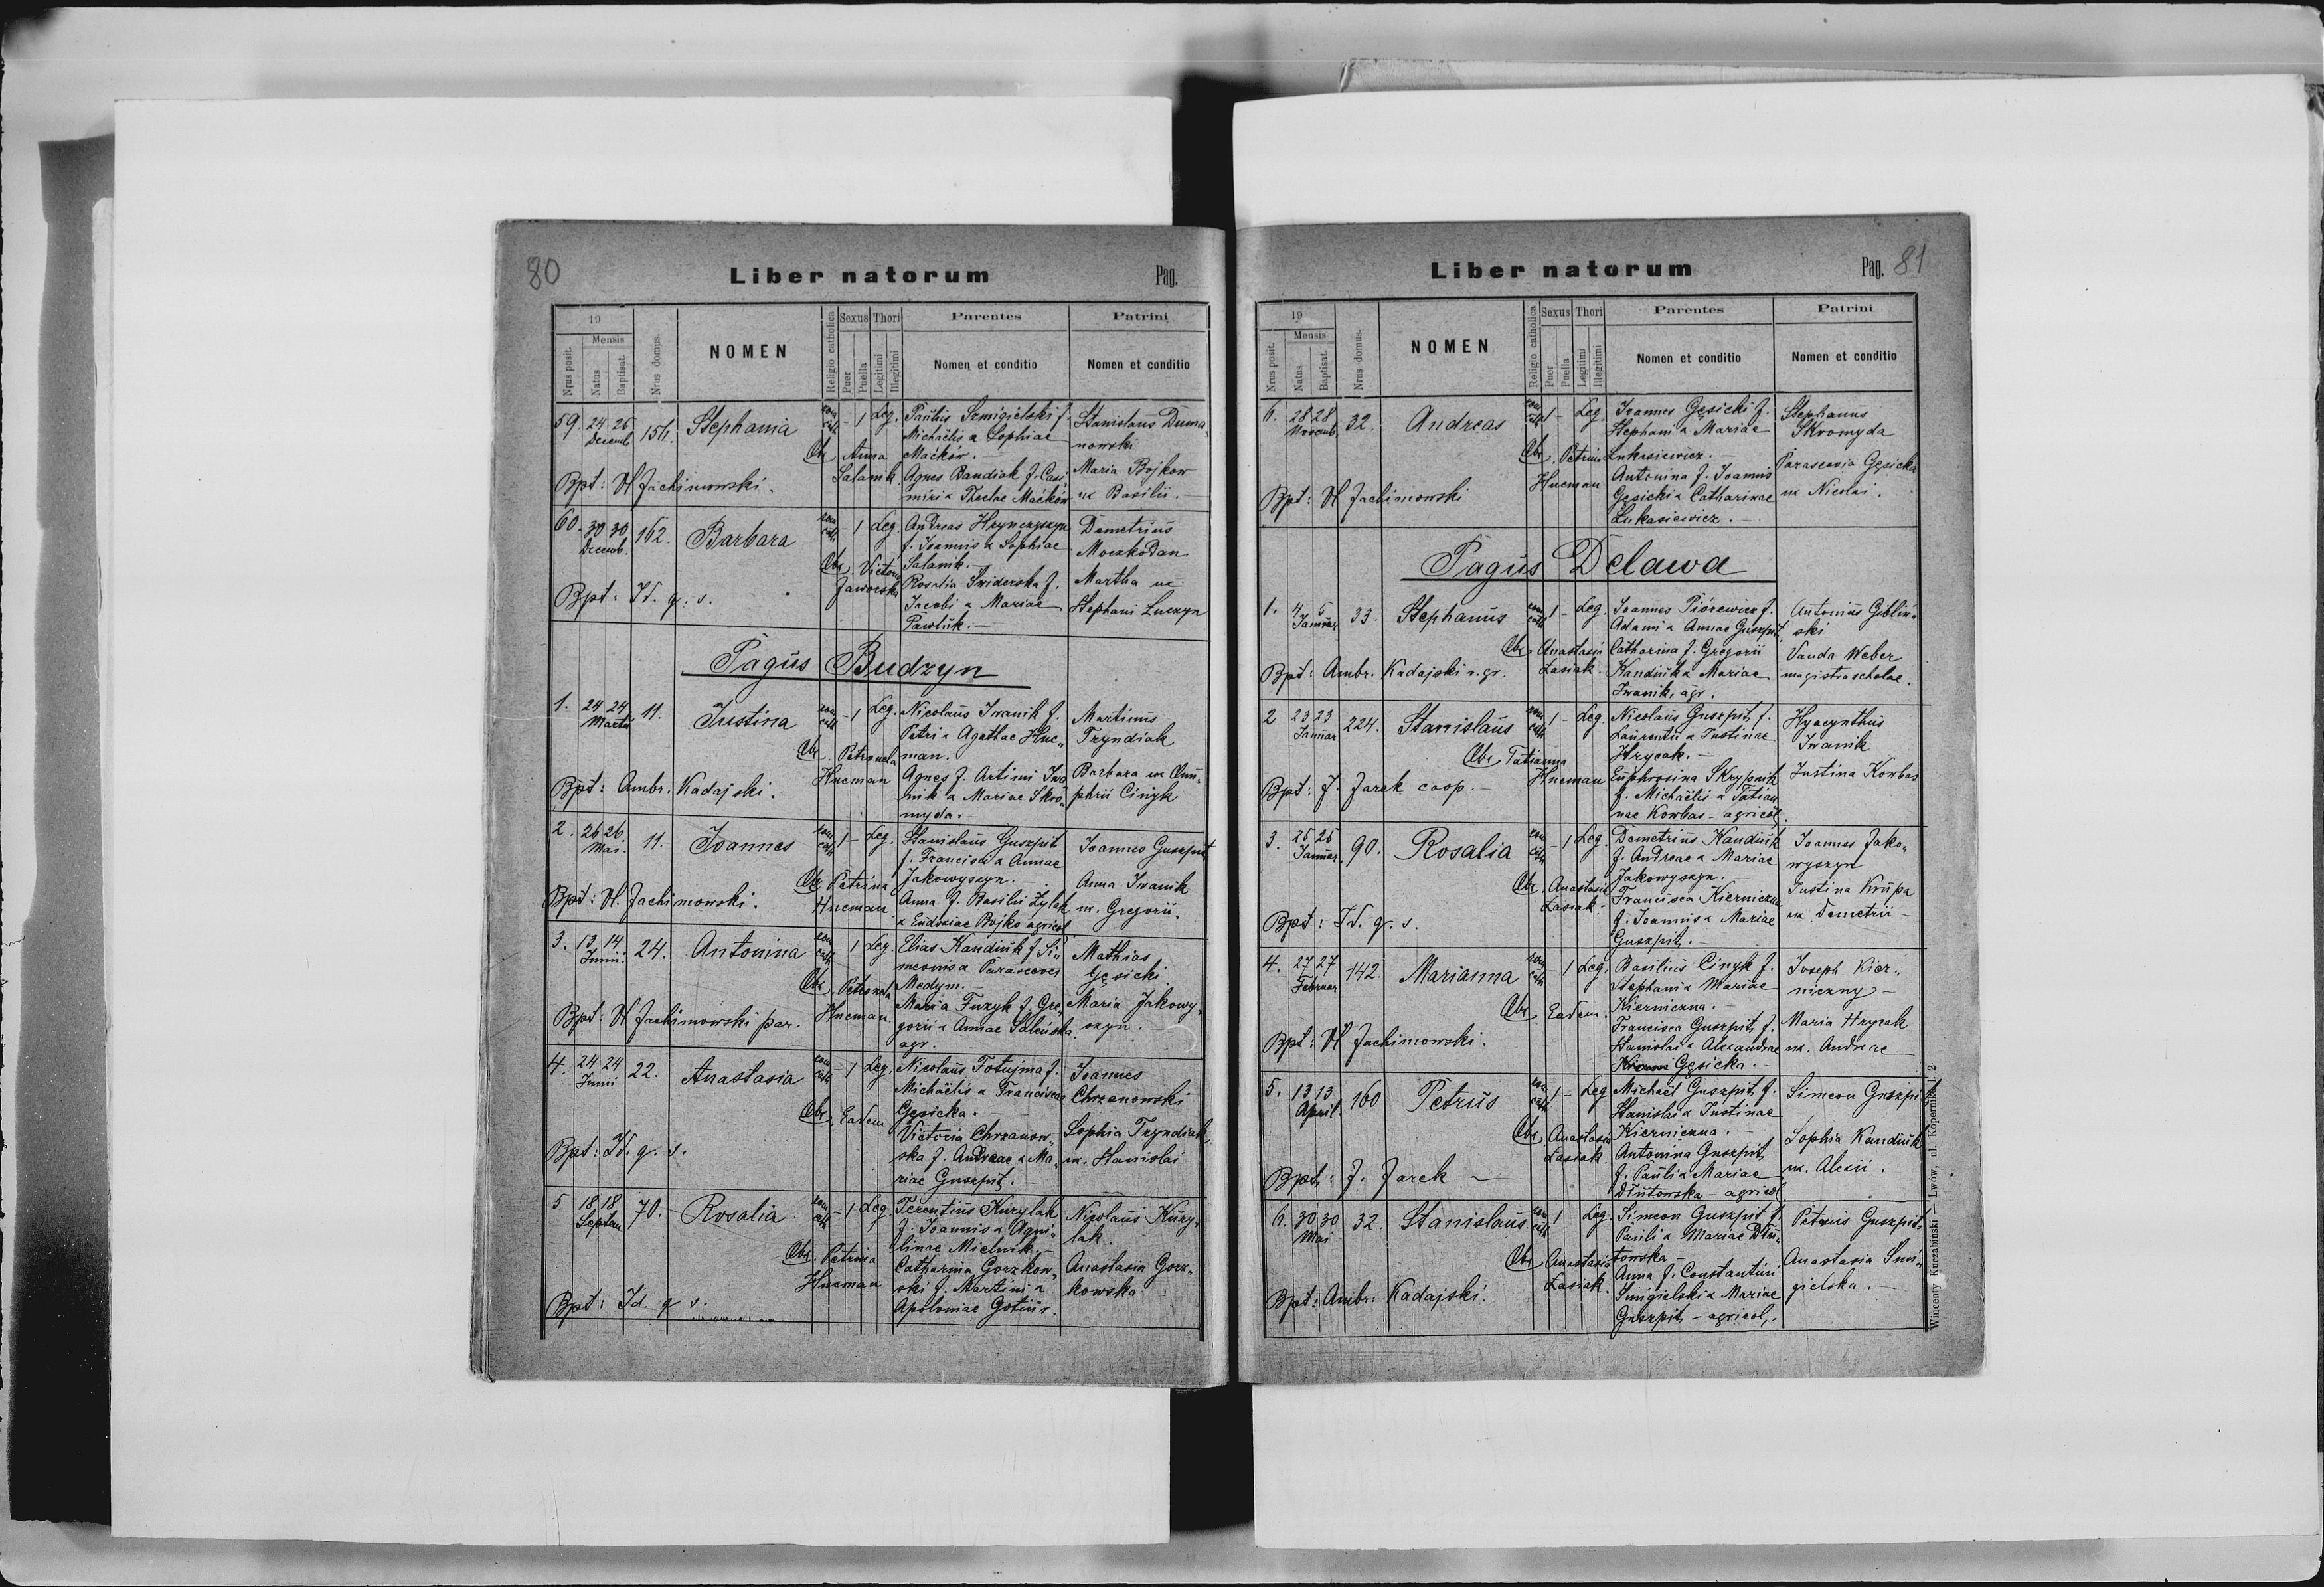 80
Liber natorum
Pag.
19
Mensis
Nrus posit.
Natus
Baptisat.
Nrus domus.
NOMEN
Religio catholica
Sexus
Puer
Puella
Thori
Legitimi
Illegitimi
Parentes
Nomen et conditio
Patrini
Nomen et conditio
59. 24 26 Decemb. 156. Stephania rom. cath. - 1 Leg.
Paulus Szmigielski f.
Michaëlis & Sophiae
Maćków. -
Agnes Bandiak f. Casi„
miri & Theclae Maćków
Stanislaus Duma„
nowski
Maria Bojkow
ux Basilii. -
Obs. Anna
Salamik
Bpt: W Jachimowski.
60. 30 30 Decemb. 162. Barbara rom. cath. - 1 Leg.
Andreas Hrynczyszyn
f. Joannis & Sophiae
Salamik. -
Rosalia Swiderska f.
Jacobi & Mariae
Pawluk. -
Demetrius
Moczkodan
Martha ux
Stephani Luczyn
Obs. Victoria
Jaworska
Bpt: Id. q. s.
Pagus Budzyn
1. 24 24 Martii 11. Justina rom. cath. - 1 Leg.
Nicolaus Iwanik f.
Petri & Agathae Huc„
man.
Agnes f. Artimi Iwa
nik & Mariae Skro„
myda. -
Martinus
Tryndiak
Barbara ux Onu„
phrii Cinyk
Obs. Petronela
Hucman
Bpt: Ambr. Kadajski.
2. 26 26 Mai. 11. Joannes rom. cath. 1 - Leg.
Stanislaus Guszpit
f. Francisci & Annae
Jakowyszyn.
Anna f. Basilii Zylak
& Eudosiae Bojko agricol
Joannes Guszpit
Anna Iwanik
ux. Gregorii.
Obs. Petrina
Hucman
Bpt: W. Jachimowski.
3. 13 14 Junii. 24. Antonina rom. cath. 1 Leg.
Elias Kandiuk f. Si„
meonis & Parascevei
Medym. -
Maria Fuzyk f. Gre„
gorii & Annae
agr.
Mathias
Gęsicki
Maria Jakowy„
szyn.
Obs. Petronela
Hucman.
Bpt: W Jachimowski par.
4. 24 24 Junii 22. Anastasia rom. cath. - 1 Leg.
Nicolaus Fotujma f.
Michaëlis & Franciscae
Gęsicka. -
Victoria Chrzanow„
ska f. Andreae & Ma„
riae Guszpit. -
Joannes
Chrzanowski
Sophia Tryndiak
ux. Stanislai
Obs. Eadem
Bpt: Id. q. s.
5 18 18 Septem 70. Rosalia rom. cath. - 1 Leg.
Terentius Kurylak
f. Joannis & Agni„
linae Mielnik. -
Catharina Gorzkow„
ski f. Martini &
Apoloniae
Nicolaus Kury„
lak.
Anastasia Gorz„
kowska
Obs. Petrina
Hucman
Bpt: Id. q s.
Liber natorum
Pag. 81
19
Mensis
Nrus posit.
Natus
Baptisat.
Nrus domus.
NOMEN
Religio catholica
Sexus
Puer
Puella
Thori
Legitimi
Illegitimi
Parentes
Nomen et conditio
Patrini
Nomen et conditio
6. 28 28 Novemb. 32. Andreas rom. cath. 1 - Leg.
Joannes Gęsicki f.
Stephani & Mariae
Łukasiewicz. -
Antonina f. Joannis
Gęsicki & Catharinae
Łukasiewicz. -
Stephanus
Skromyda
Parascevia Gęsicka
ux Nicolai.
Obs. Petrina
Hucman
Bpt: W Jachimowski
Pagus Delawa
1. 4 5 Januar. 33. Stephanus rom. cath. 1 - Leg.
Joannes Piórewicz f.
Adami & Annae Guszpit
Catharina f. Gregorii
Kandiuk & Mariae
Iwanik, agr.
Antonius Giblin„
ski
Vanda Weber
magistra scholae.
Obs. Anastasia
Łasiak.
Bpt: Ambr. Kadajski r. gr.
2 23 23 Januar 224. Stanislaus rom. cath. 1 - Leg.
Nicolaus Guszpit f.
Laurentii & Justinae
Hrycak. -
Euphrosina Skrypnik
f. Michaëlis & Tatian
nae Korbas - agricol.
Hyacynthus
Iwanik
Justina Korbas
Obs. Tatianna
Hucman
Bpt: J. Jarek coop. -
3. 25 25 Januar. 90. Rosalia rom. cath. - 1 Leg.
Demetrius Kandiuk
f. Andreae & Mariae
Jakowyszyn. -
Francisca Kierniczna
f. Joannis & Mariae
Guszpit. -
Joannes Jako„
wyszyn
Justina Krupa
ux Demetrii -
Obs. Anastasia
Łasiak.
Bpt: Id. q. s.
4. 27 27 Februar 142. Marianna rom. cath. - 1 Leg.
Basilius Cinyk f.
Stephani & Mariae
Kierniczna.
Francisca Guszpit f.
Stanislai & Alexandrae
Gęsicka. -
Joseph Kier„
niczny -
Maria Hrycak
ux. Andreae -
Obs. Eadem.
Bpt: W Jachimowski.
5. 13 13 April 160 Petrus rom. cath. 1 - Leg
Michaël Guszpit f.
Stanislai & Justinae
Kierniczna. -
Antonina Guszpit
f. Pauli & Mariae
Dłutowska - agricol
Simeon Guszpit
Sophia Kandiuk
ux. Alexii.
Obs. Anastasia
Łasiak
Bpt: J. Jarek -
6. 30 30 Mai 32. Stanislaus rom. cath. 1 Leg.
Simeon Guszpit f.
Pauli & Mariae Dłu„
towska -
Anna f. Constantini
Smigielski & Mariae
Guszpit - agricol.
Petrus Guszpit
Anastasia Smi„
gielska. -
Obs. Anastasia
Łasiak.
Bpt: Ambr: Kadajski.
Wincenty Kuczabiński — Lwów, ul. Kopernika l. 2